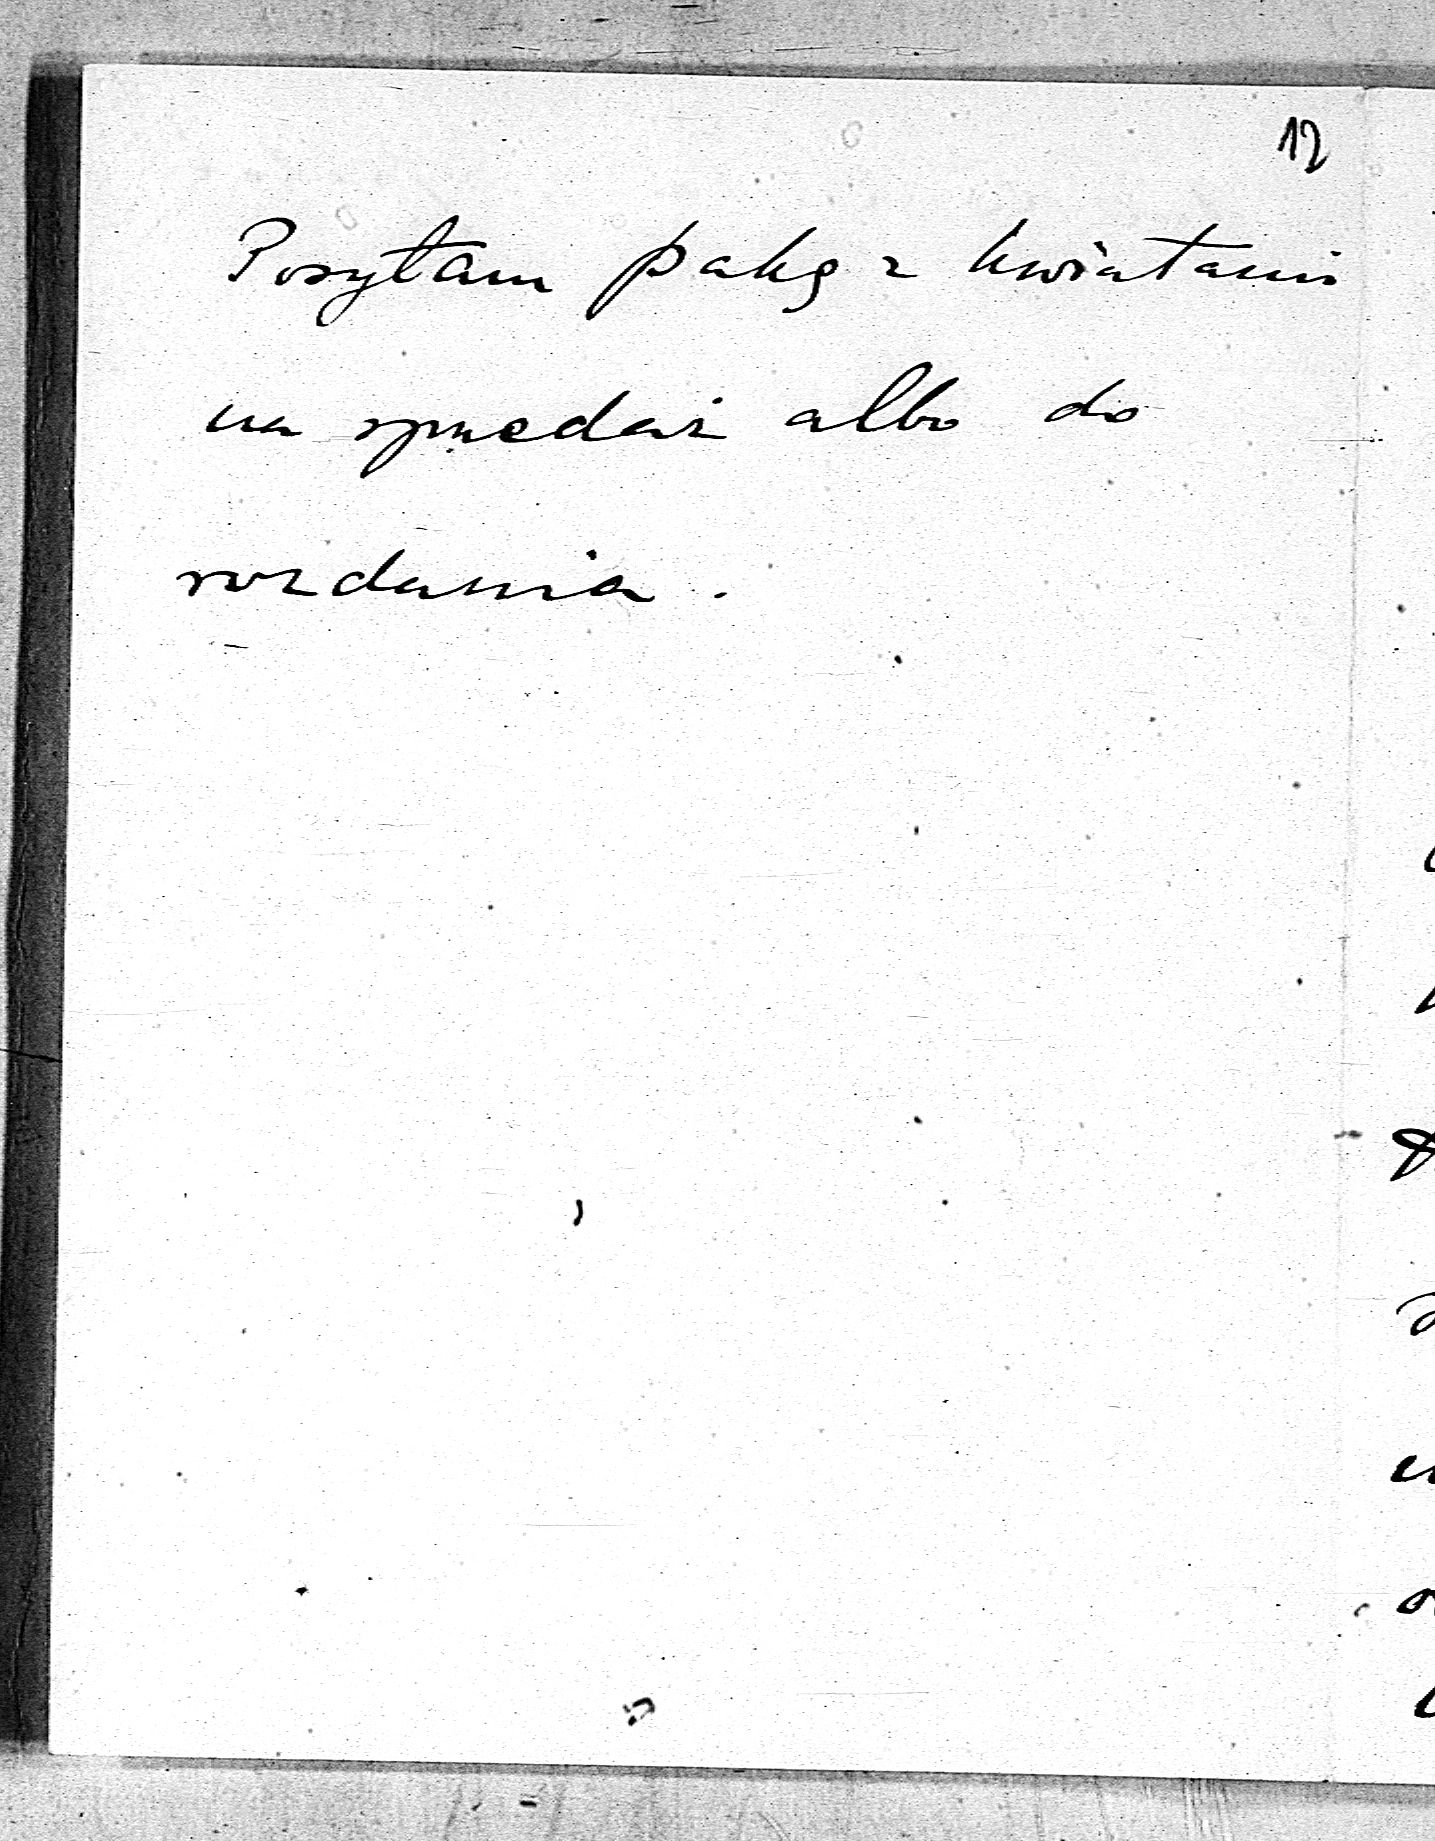 12
Posyłam pakę z kwiatami
na sprzedaż albo do
rozdania.